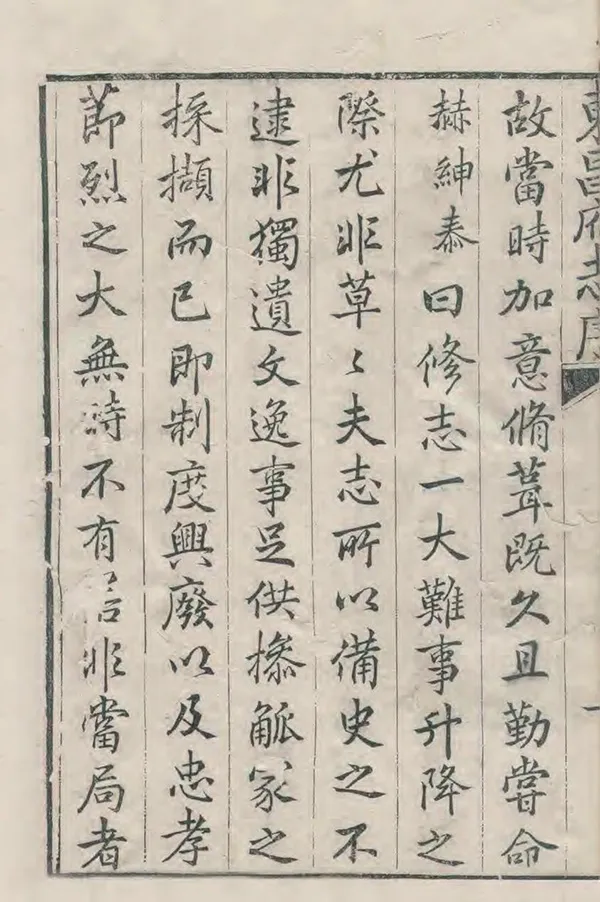 東昌府志序
一
故當時加意脩葺既久且勤嘗命
赫紳泰曰修志一大難事升降之
際尤非草〻夫志所以備史之不
逮非獨遺文逸事足供摻觚家之
採擷而已即制度興廢以及忠孝
節烈之大無時不有言非當局者